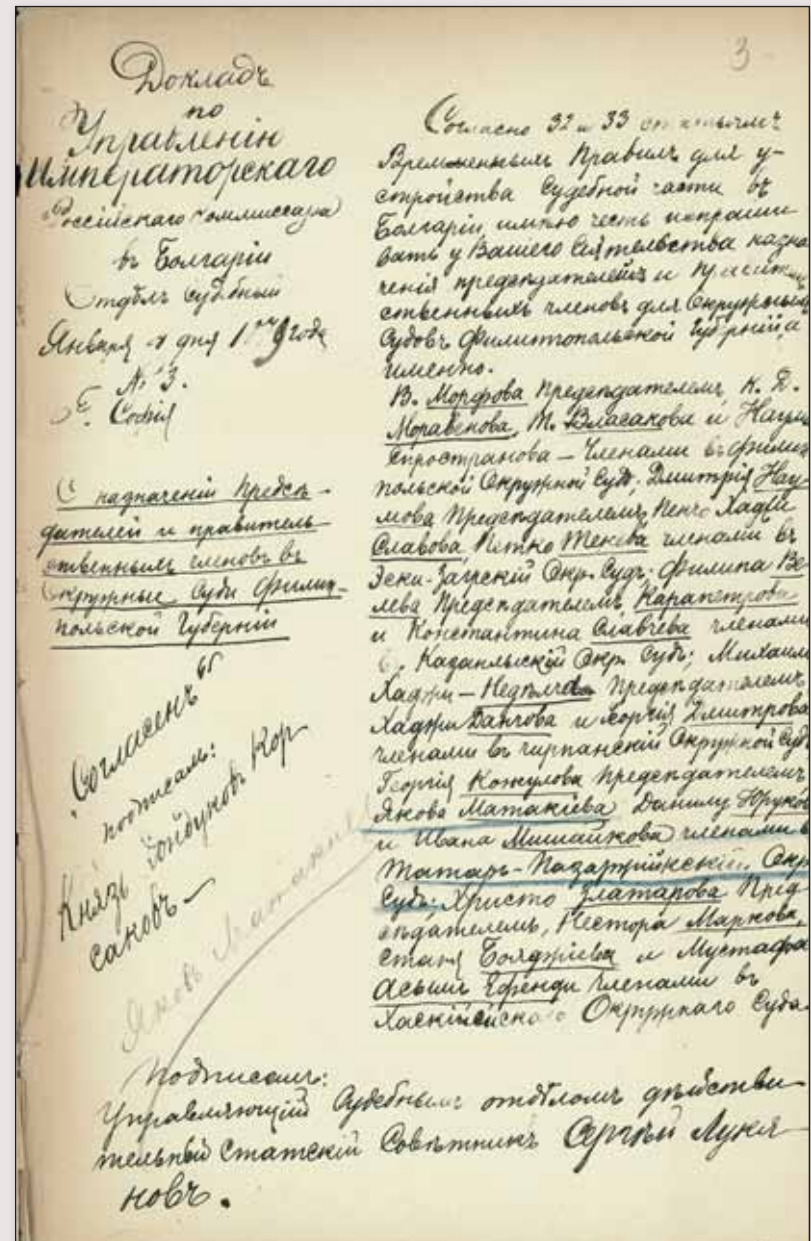 3
Докладъ
по
Управленію
Императорскаго
Россійскаго Коммиссара
въ Болгаріи
Отдѣлъ судебный
Января дня 1879 года
№ 3.
Г. Софія
О назначеніи Предсѣ-
дателей и правитель-
ственныхъ членовъ въ
Окружные Суды Филип-
польской Губерніи
"Согласенъ"
подписалъ:
Князь Дондуковъ Кор
саковъ —
Яковъ Матакиев
Согласно 32 и 33 статьямъ
Временныхъ Правилъ для у-
стройства Судебной части въ
Болгаріи, имѣю честь испраши
вать у Вашего Сіятельства назна
ченія предсѣдателей и правит
ственныхъ членовъ для Окружныхъ
Судовъ Филиппопольской Губерніи, а
именно.
В. Морфова Предсѣдателемъ, К. Д.
Моравенова, М. Власакова и Наума
Спространова — Членами въ Филип
польской Окружной Судъ; Дмитрія Нау-
мова Предсѣдателемъ, Пенчо Хаджи
Славова, Петко членами въ
Эски-Загрскій Окр. Судъ; Филипа Ве-
лева Предсѣдателемъ, Карапетрова
и Константина Славчева членами
Казанлыкскій Окр. Судъ; Михаила
Хаджи — Недѣлчева Предсѣдателемъ
Хаджи Данчова и Георгія Дмитрова
членами въ Чирпанскій Окружной Судъ
Георгія Кожулова Предсѣдателемъ
Якова Матакіева, Данилу Юруков
и Ивана Мишайкова членами в
Татаръ-Пазарджикскій Окр
Судъ; Христо Златарова Пред-
сѣдателемъ, Нестора Маркова,
Станя Бояджіева и Мустафа
Асымъ Ефенди членами въ
Хаскіойскаго Окружнаго Суда.
Подписалъ:
Управляющій Судебнымъ отдѣломъ дѣйстви-
тельный Статскій Совѣтникъ Сергѣй Лукія-
новъ.